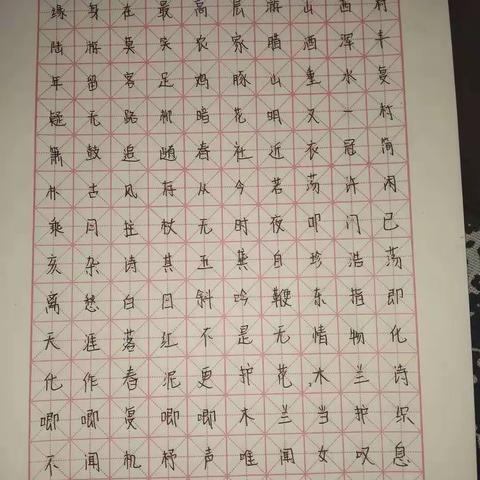 缘身在最高层游山西村
陆游莫笑农家腊酒浑丰
年留客足鸡豚山重水复
疑无路柳暗花明又一村
箫鼓追随春社近衣冠简
朴古风存从今若荡许闲
乘月拄杖无时夜叩门己
亥杂诗其五龚自珍浩荡
离愁白日斜吟鞭东指即
天涯落红不是无情物化
化作春泥更护花,木兰诗
唧唧复唧唧木兰当护织
不闻机杼声唯闻女叹息